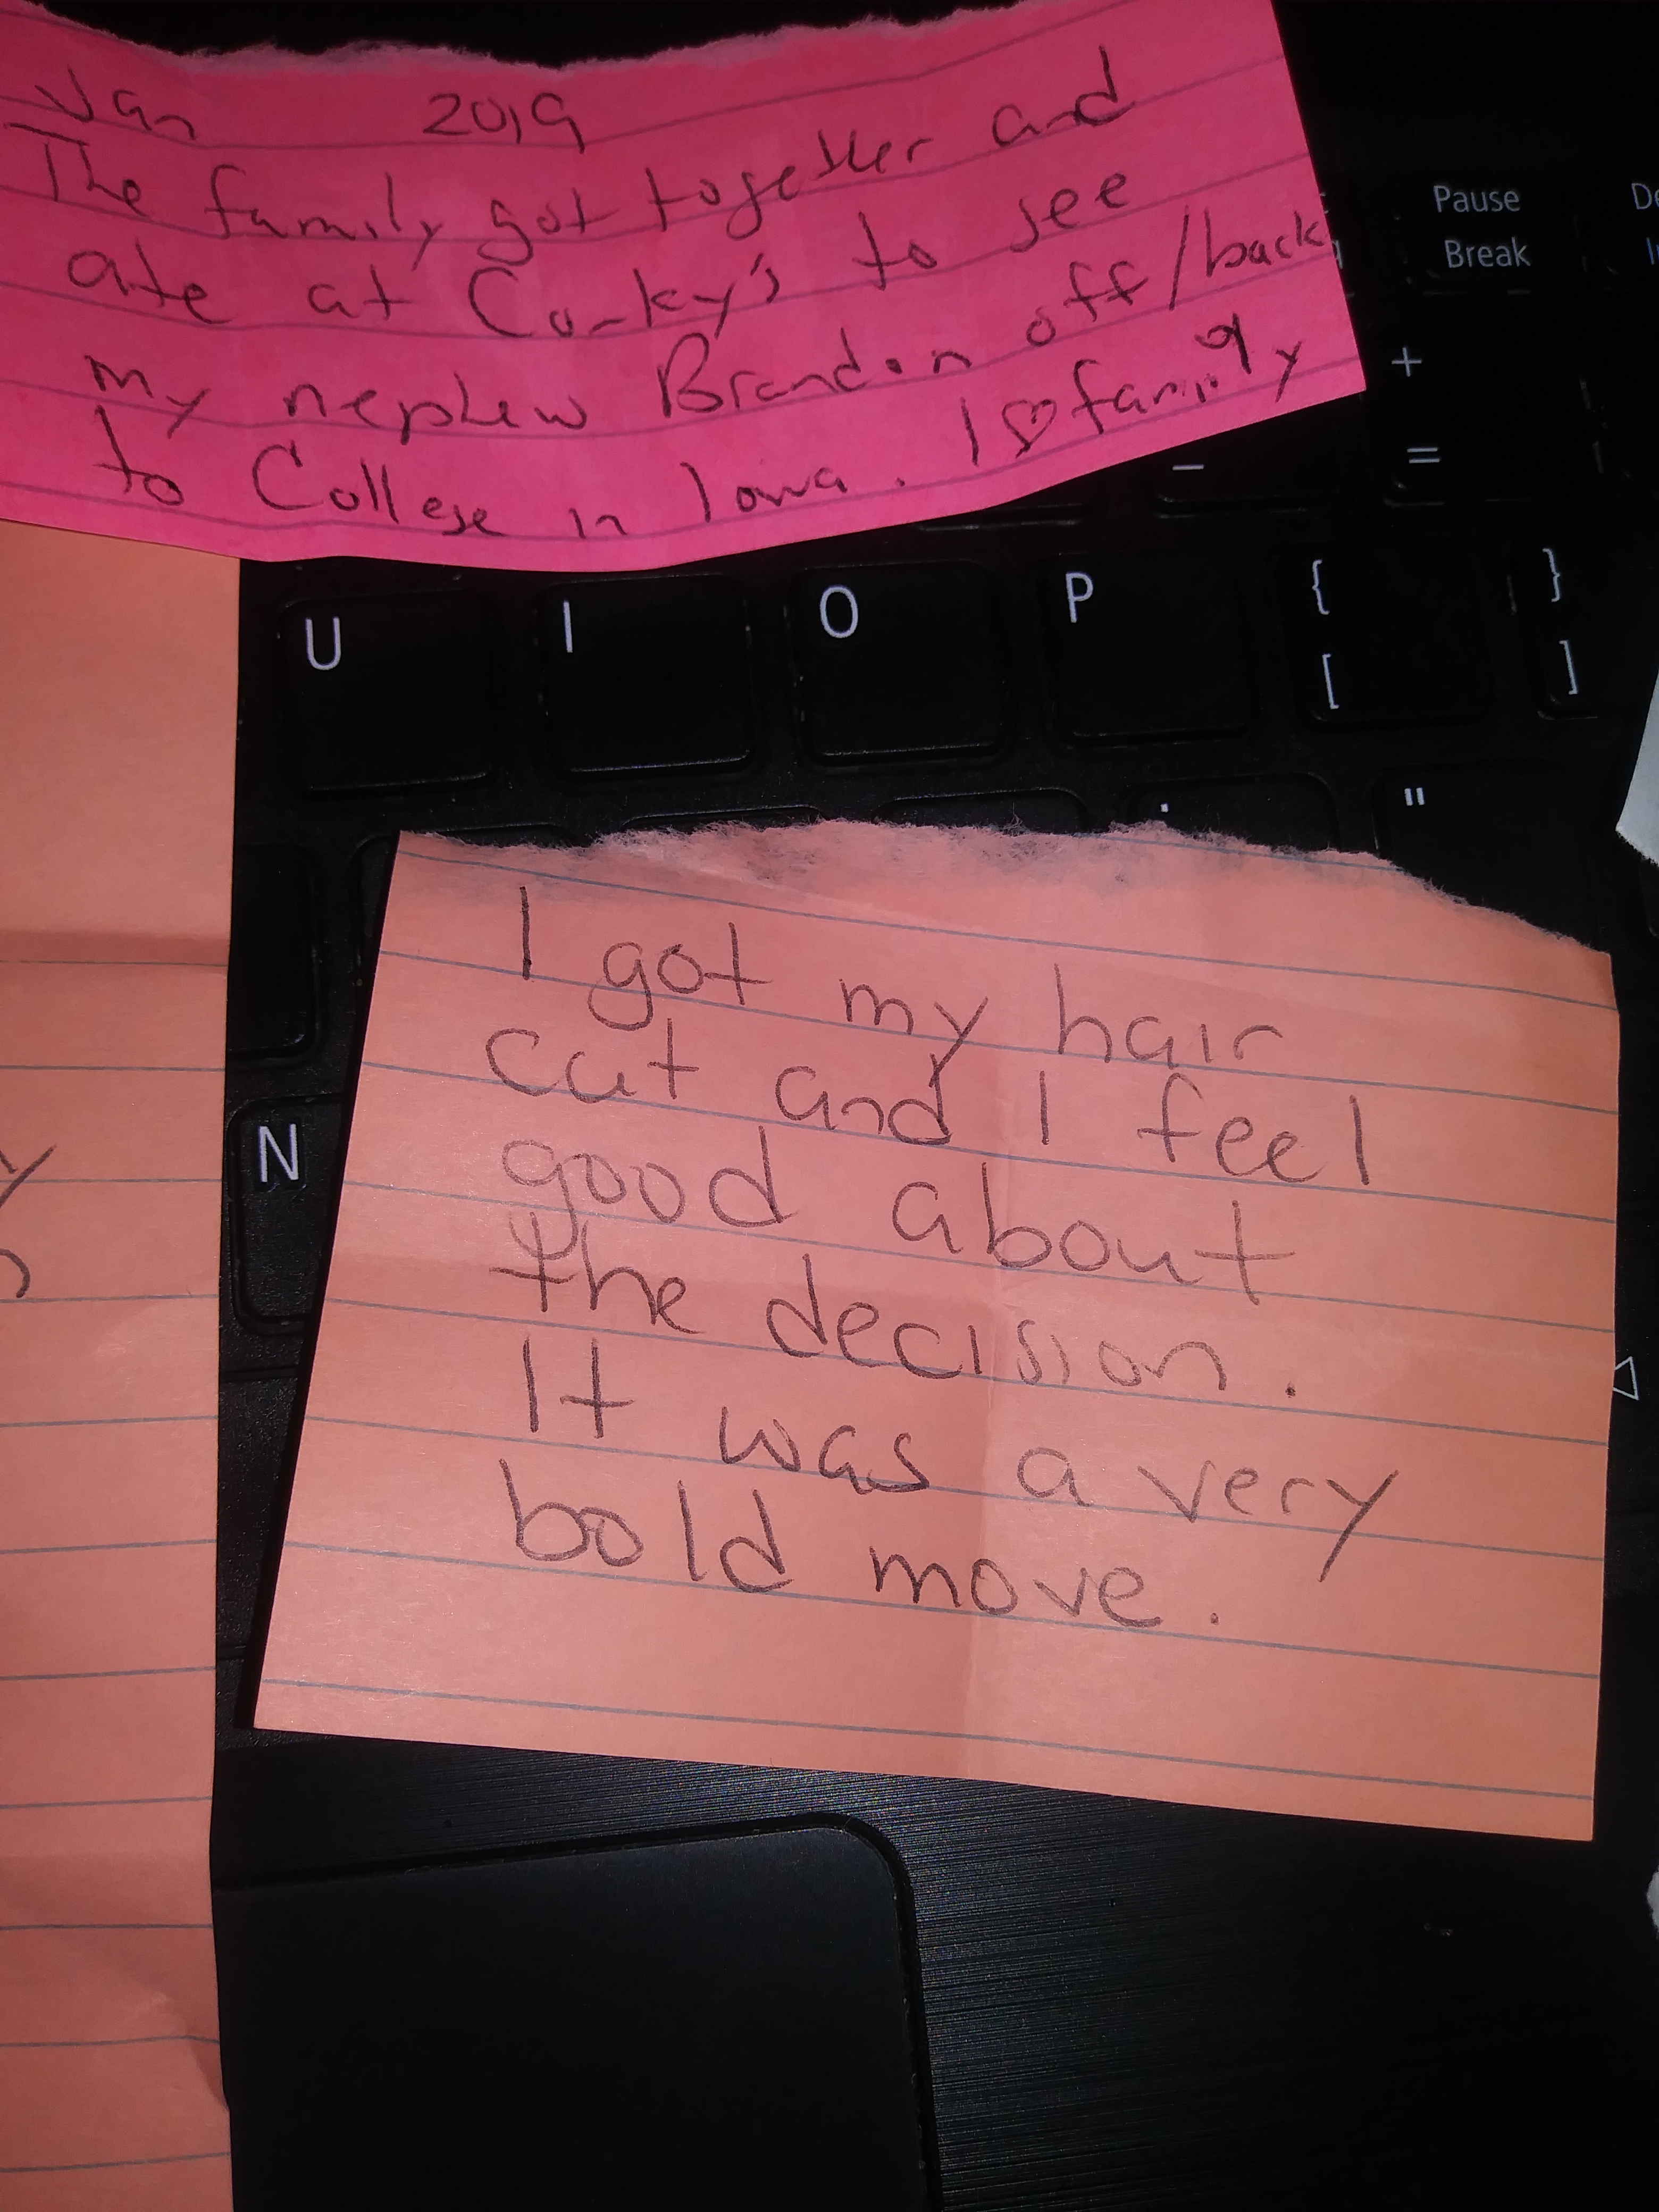 Jan 2019
The family got together and
ate at Corky's to see
my nephew Brandon off/back
to College in Iowa. I ♡ family
Pause
Break
+
=
-
U I O P { }
[ ]
"
N
I got my hair
cut and I feel
good about
the decision.
It was a very
bold move.